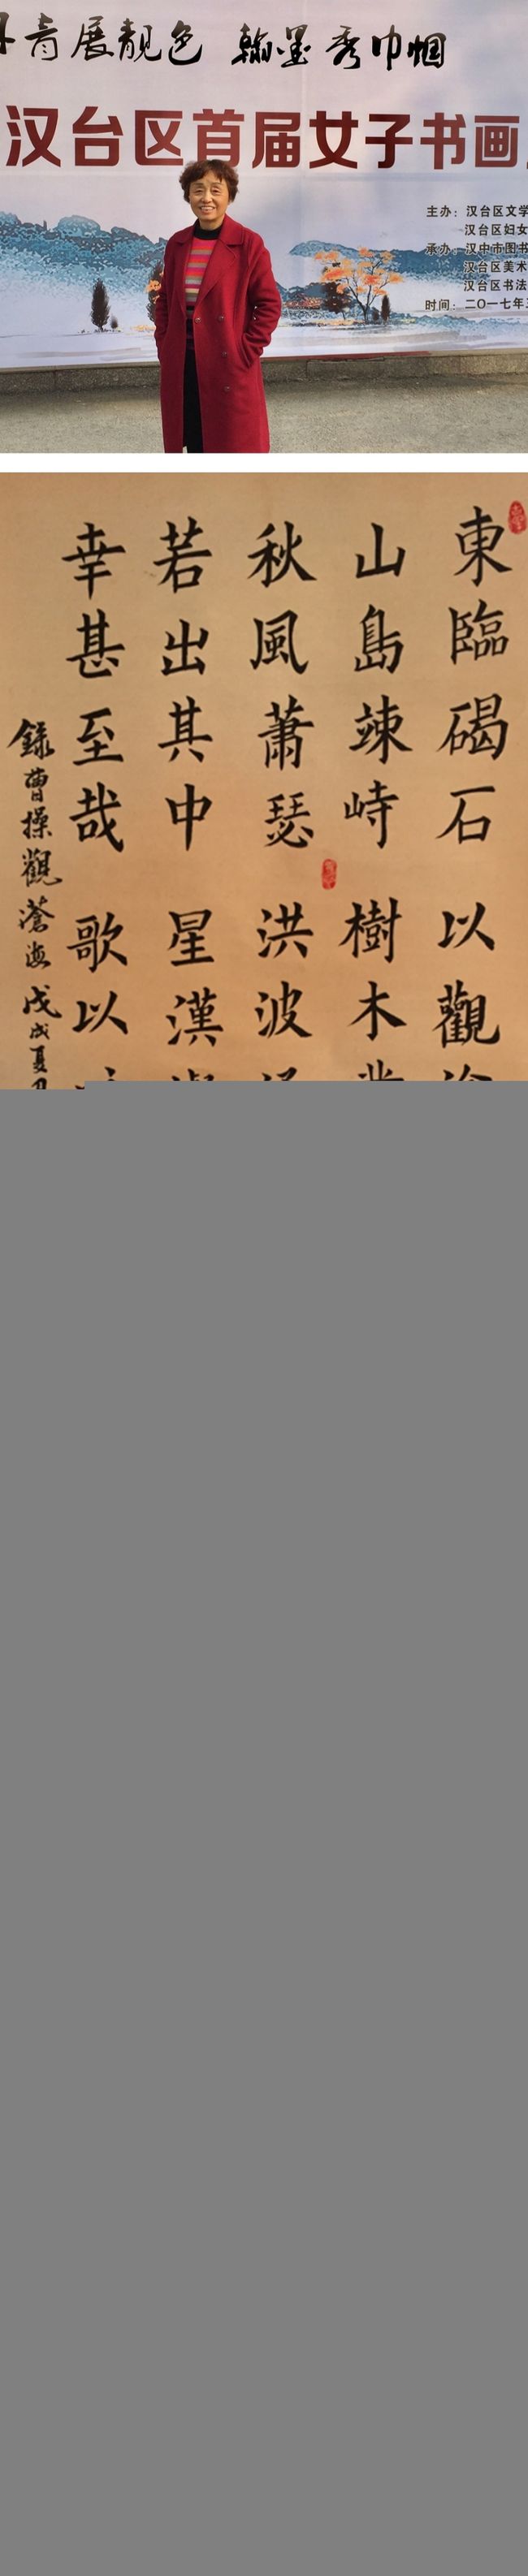 青展靓色 翰墨秀巾帼
汉台区首届女子书画
主办：汉台区文学
汉台区妇女
承办：汉中市图书
汉台区美术
汉台区书法
时间：二〇一七年三
東臨碣石以觀
山島竦峙樹木
秋風蕭瑟洪波
若出其中星漢
幸甚至哉歌以
錄曹操觀滄海戊戌夏